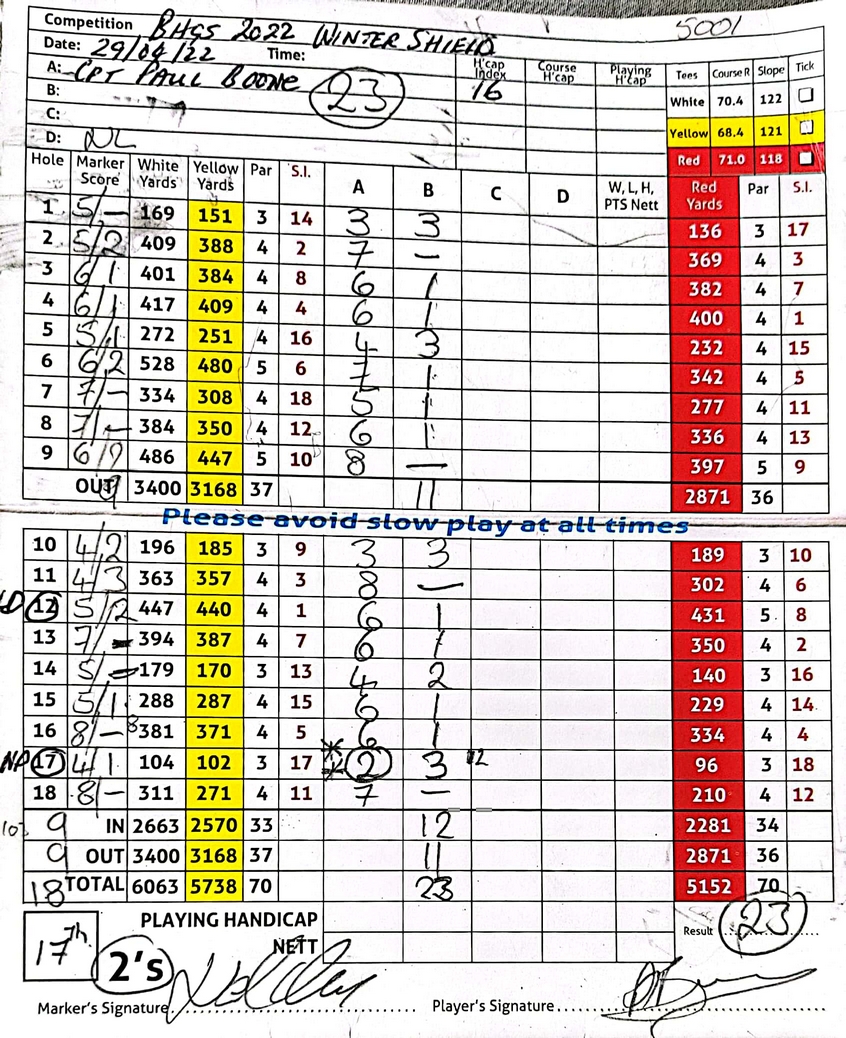 5001
Competition BHGS 2022 WINTER SHIELD
Date: 29/04/22 Time:
A: CPT PAUL BOONE 23 H'cap Index 16 Course H'cap Playing H'cap Tees Course R Slope Tick
B: White 70.4 122
C: Yellow 68.4 121
D: NL Red 71.0 118
Hole Marker Score White Yards Yellow Yards Par S.I. A B C D W, L, H, PTS Nett Red Yards Par S.I.
1 5/– 169 151 3 14 3 3 136 3 17
2 5/2 409 388 4 2 7 – 369 4 3
3 6/1 401 384 4 8 6 1 382 4 7
4 6/1 417 409 4 4 6 1 400 4 1
5 5/1 272 251 4 16 4 3 232 4 15
6 6/2 528 480 5 6 7 1 342 4 5
7 7/– 334 308 4 18 5 1 277 4 11
8 7/– 384 350 4 12 6 1 336 4 13
9 6/2 486 447 5 10 8 – 397 5 9
OUT 9 3400 3168 37 11 2871 36
Please avoid slow play at all times
10 4/2 196 185 3 9 3 3 189 3 10
11 4/3 363 357 4 3 8 – 302 4 6
LD 12 5/2 447 440 4 1 6 1 431 5 8
13 7/– 394 387 4 7 6 1 350 4 2
14 5/– 179 170 3 13 4 2 140 3 16
15 5/1 288 287 4 15 6 1 229 4 14
16 8/– 381 371 4 5 6 1 334 4 4
NP 17 4/1 104 102 3 17 2 3 96 3 18
18 8/– 311 271 4 11 7 – 210 4 12
9 IN 2663 2570 33 12 2281 34
9 OUT 3400 3168 37 11 2871 36
18 TOTAL 6063 5738 70 23 5152 70
PLAYING HANDICAP
NETT Result 23
17th 2's
Marker's Signature Player's Signature